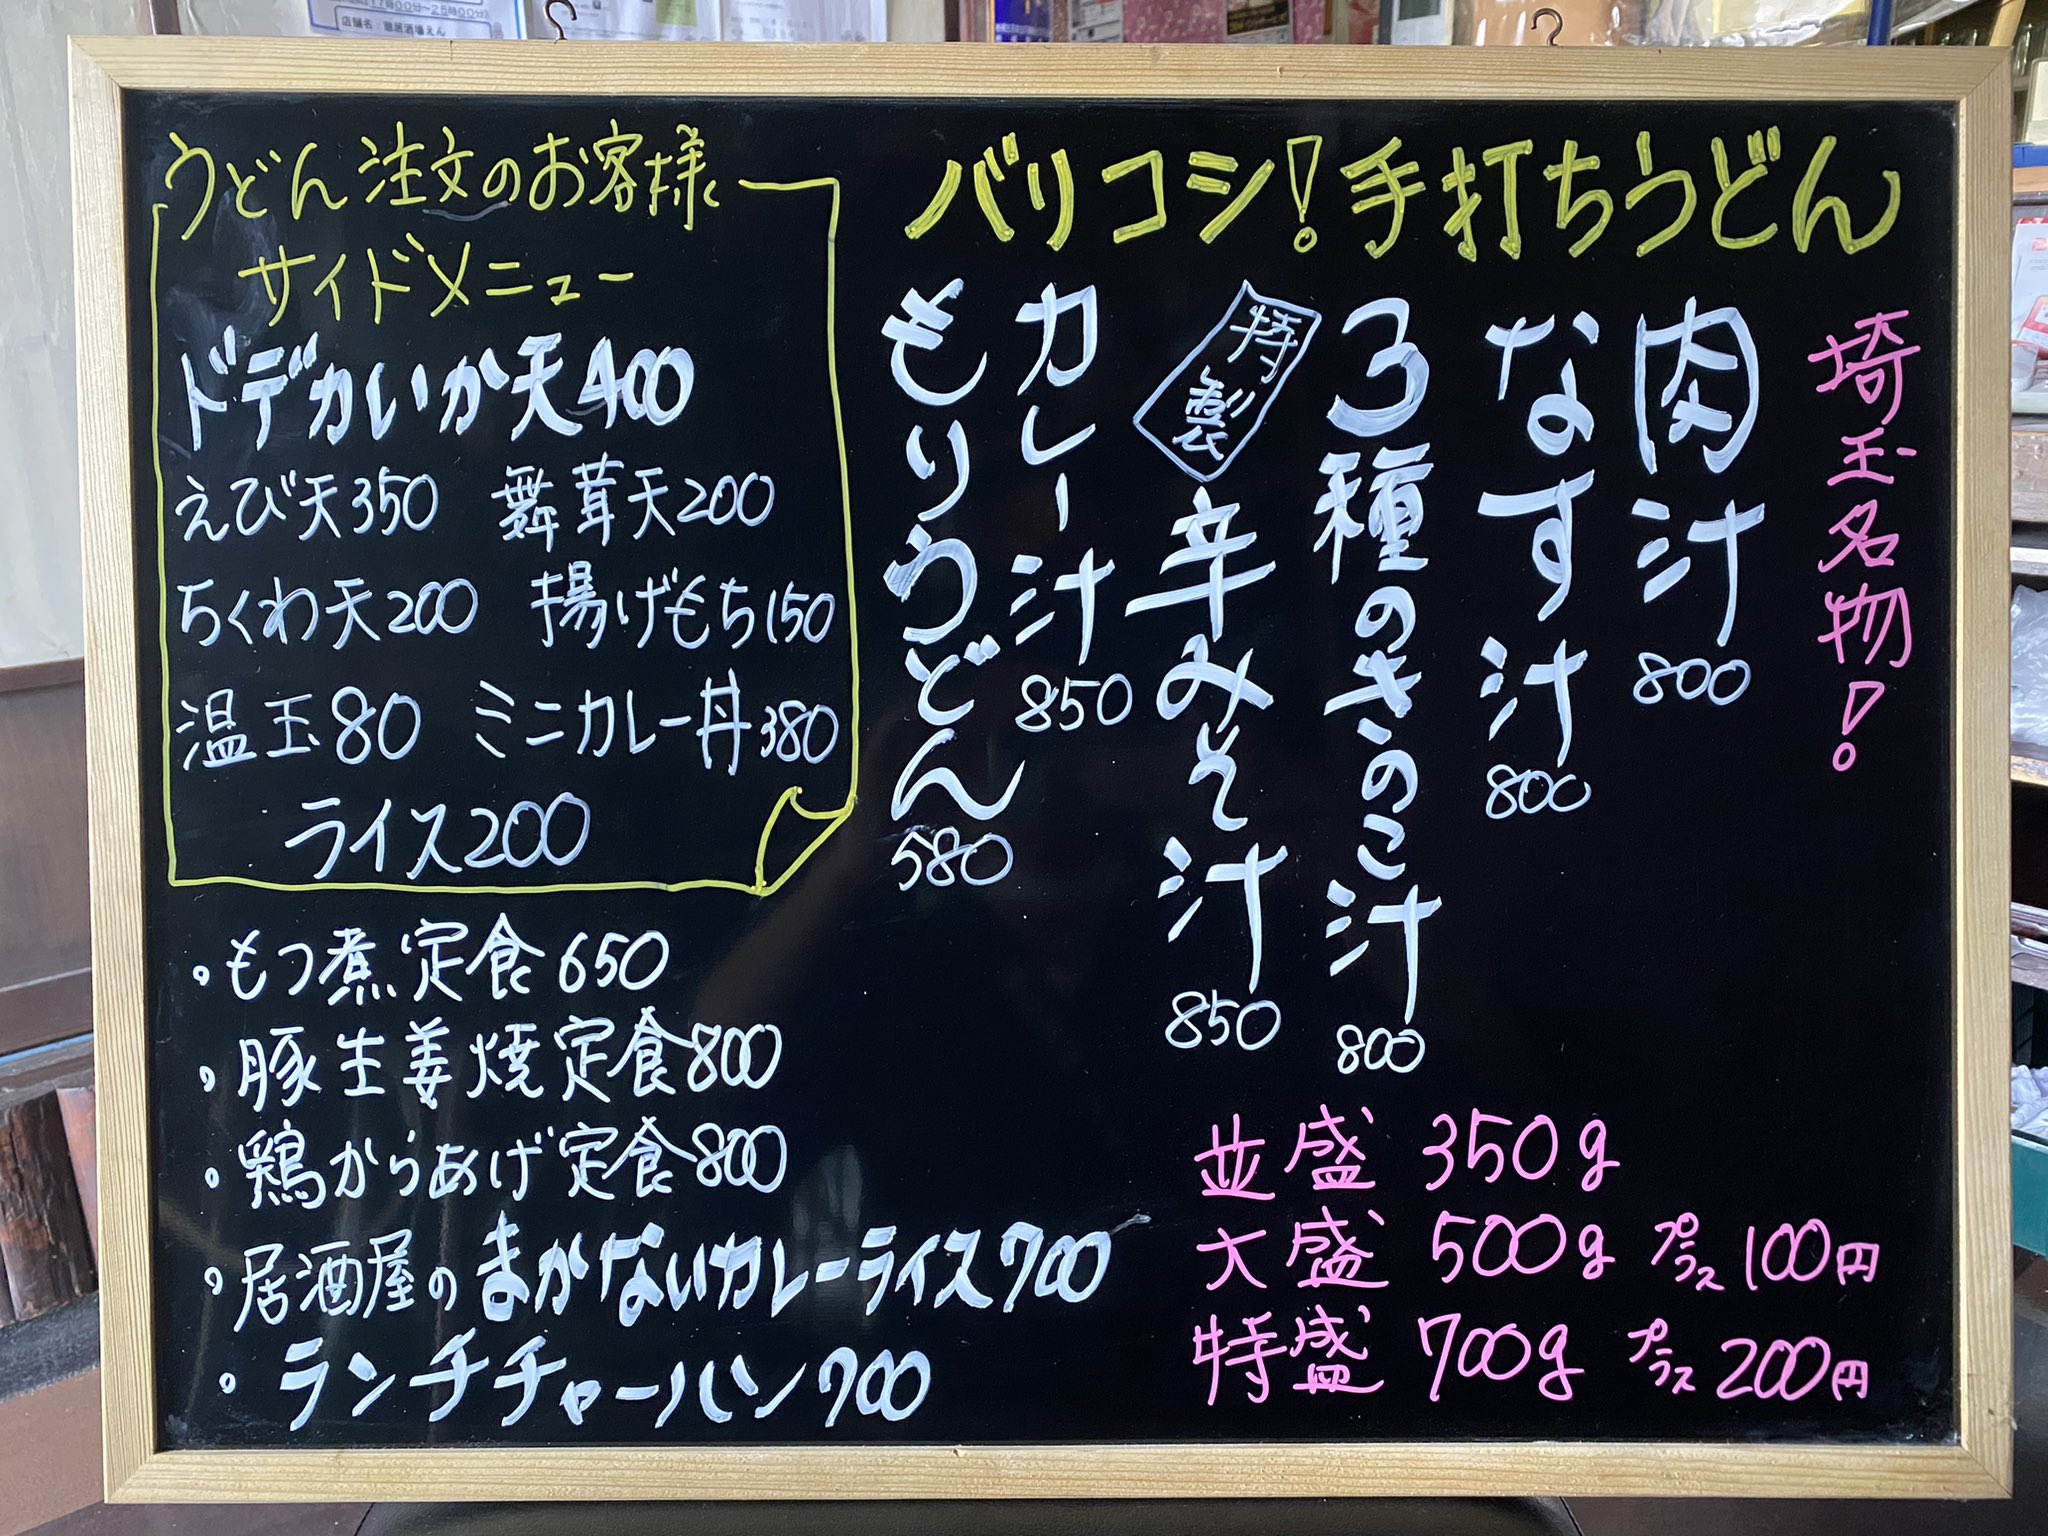 17時00分～25時00分
店舗名
バリコシ!手打ちうどん
埼玉名物!
肉汁 800
なす汁 800
3種のきのこ汁 800
特製 辛みそ汁 850
カレー汁 850
もりうどん 580
並盛 350g
大盛 500g プラス 100円
特盛 700g プラス 200円
うどん注文のお客様
サイドメニュー
ドデカいか天400
えび天350 舞茸天200
ちくわ天200 揚げもち150
温玉80 ミニカレー丼380
ライス200
・もつ煮定食650
・豚生姜焼定食800
・鶏からあげ定食800
・居酒屋のまかないカレーライス700
・ランチチャーハン700